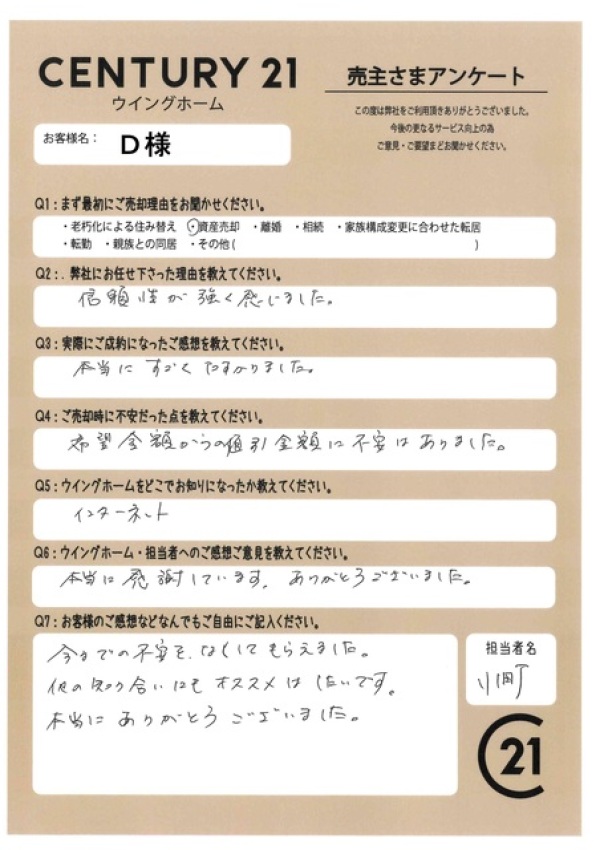 CENTURY 21
ウイングホーム
売主さまアンケート
この度は弊社をご利用頂きありがとうございました。
今後の更なるサービス向上の為
ご意見・ご要望までお聞かせください。
お客様名： D様
Q1：まず最初にご売却理由をお聞かせください。
・老朽化による住み替え ・資産売却 ・離婚 ・相続 ・家族構成変更に合わせた転居
・転勤 ・親族との同居 ・その他( )
Q2：. 弊社にお任せ下さった理由を教えてください。
信頼性が強く感じました。
Q3：実際にご成約になったご感想を教えてください。
本当にすごくたすかりました。
Q4：ご売却時に不安だった点を教えてください。
希望金額からの値引金額に不安はありました。
Q5：ウイングホームをどこでお知りになったか教えてください。
インターネット
Q6：ウイングホーム・担当者へのご感想ご意見を教えてください。
本当に感謝しています。ありがとうございました。
Q7：お客様のご感想などなんでもご自由にご記入ください。
今までの不安を、なくしてもらえました。
他の知り合いにもオススメはしたいです。
本当にありがとうございました。
担当者名
21